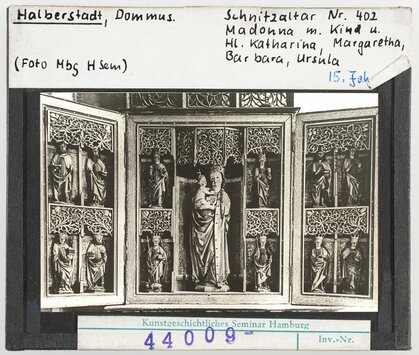 Halberstadt, Dommus.
(Foto Hbg H Sem)
Schnitzaltar Nr. 402
Madonna m. Kind u.
Hl. Katharina, Margaretha,
Barbara, Ursula
15. Jah
Kunstgeschichtliches Seminar Hamburg
44009-
Inv.-Nr.